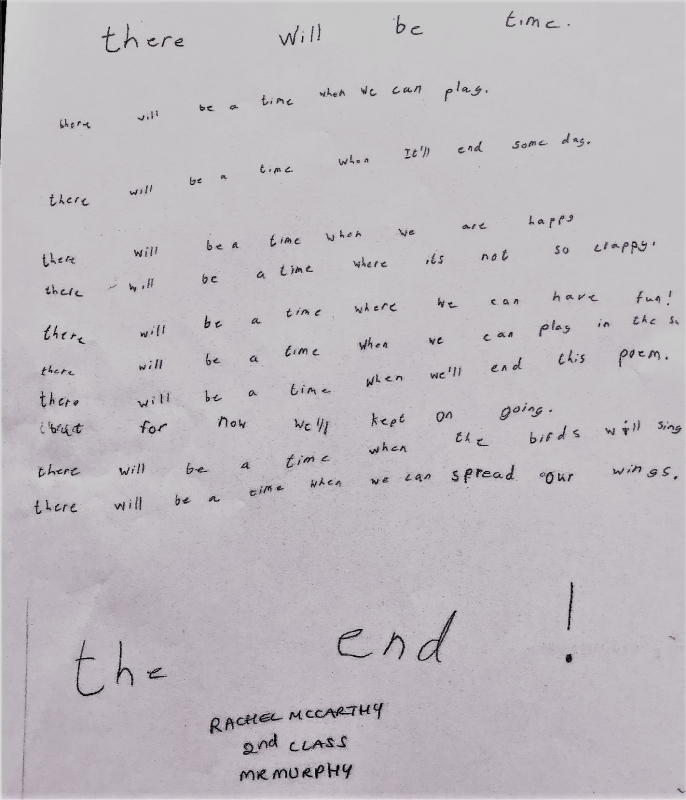 there will be time.
there will be a time when we can play.
there will be a time when It'll end some day.
there will be a time when we are happy
there will be a time where its not so crappy.
there will be a time where we can have fun!
there will be a time when we can play in the
there will be a time when we'll end this poem.
but for now we'll kept on going.
there will be a time when the birds will sing
there will be a time when we can spread our wings.
the end!
RACHEL MCCARTHY
2nd CLASS
MR MURPHY